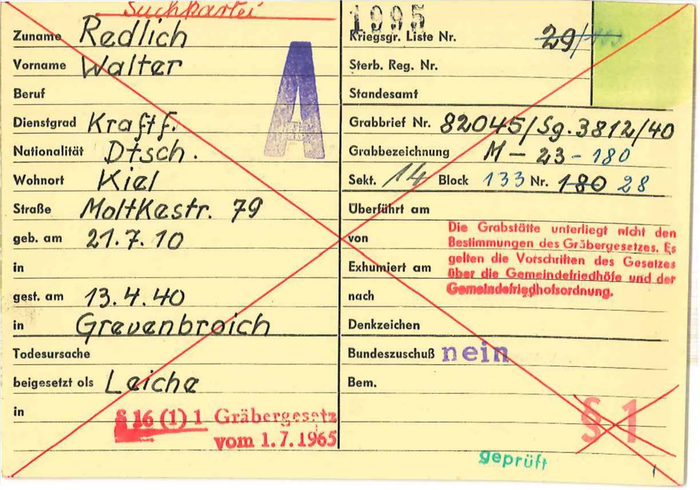 Suchkartei
1995
Zuname Redlich
Vorname Walter
Beruf
Dienstgrad Kraftf.
Nationalität Dtsch.
Wohnort Kiel
Straße Moltkestr. 79
geb. am 21.7.10
in
gest. am 13.4.40
in Grevenbroich
Todesursache
beigesetzt als Leiche
in
§ 16 (1) 1 Gräbergesetz
vom 1.7.1965
A
Kriegsgr. Liste Nr. 29/
Sterb. Reg. Nr.
Standesamt
Grabbrief Nr. 82045/Sg. 3812/40
Grabbezeichnung M - 23 - 180
Sekt. 14 Block 133 Nr. 180 28
Überführt am
von
Exhumiert am
nach
Die Grabstätte unterliegt nicht den
Bestimmungen des Gräbergesetzes. Es
gelten die Vorschriften des Gesetzes
über die Gemeindefriedhöfe und der
Gemeindefriedhofsordnung.
Denkzeichen
Bundeszuschuß nein
Bem.
§ 1
geprüft